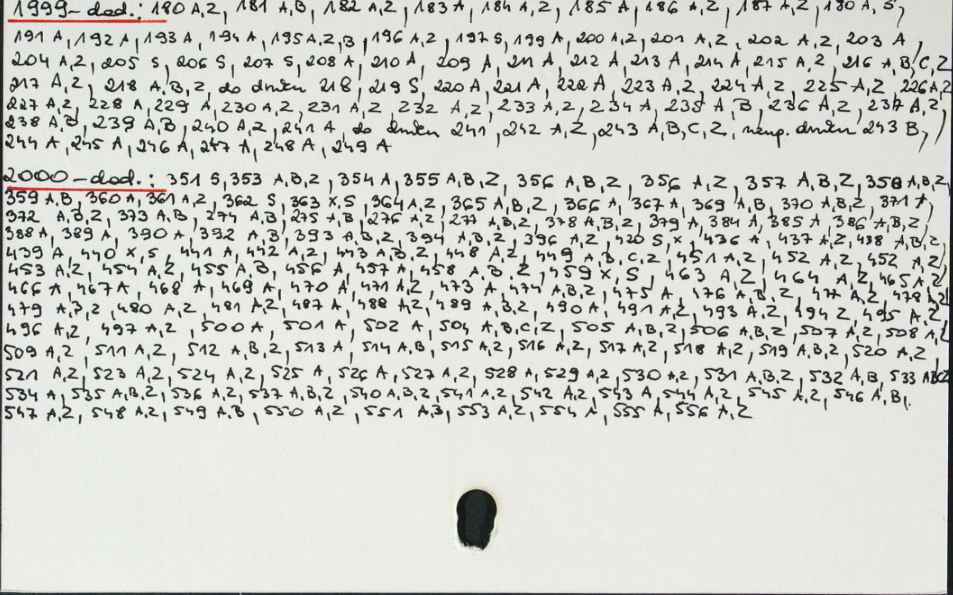 1999-dod.: 180 A,Z, 181 A,B, 182 A,Z, 183 A, 184 A,Z, 185 A, 186 A,Z, 187 A,Z, 180 A, S,
191 A, 192 A, 193 A, 194 A, 195 A,Z,B, 196 A,Z, 197 S, 199 A, 200 A,Z, 201 A,Z, 202 A,Z, 203 A,
204 A,Z, 205 S, 206 S, 207 S, 208 A, 210 A, 209 A, 211 A, 212 A, 213 A, 214 A, 215 A,Z, 216 A,B,C,Z
217 A,Z, 218 A,B,Z, do 218, 219 S, 220 A, 221 A, 222 A, 223 A,Z, 224 A,Z, 225 A,Z, 226 A,Z
227 A,Z, 228 A, 229 A, 230 A,Z, 231 A,Z, 232 A,Z, 233 A,Z, 234 A, 235 A,B, 236 A,Z, 237 A,Z,
238 A,B, 239 A,B, 240 A,Z, 241 A, do 241, 242 A,Z, 243 A,B,C,Z, 243 B,
244 A, 245 A, 246 A, 247 A, 248 A, 249 A
2000-dod.: 351 S, 353 A,B,Z, 354 A, 355 A,B,Z, 356 A,B,Z, 356 A,Z, 357 A,B,Z, 358 A,B,Z,
359 A,B, 360 A, 361 A,Z, 362 S, 363 X,S, 364 A,Z, 365 A,B,Z, 366 A, 367 A, 369 A,B, 370 A,B,Z, 371 A,
372 A,B,Z, 373 A,B, 274 A,B, 275 A,B, 276 A,Z, 277 A,B,Z, 378 A,B,Z, 379 A, 384 A, 385 A, 386 A,B,Z,
388 A, 389 A, 390 A, 392 A,B, 393 A,B,Z, 394 A,B,Z, 396 A,Z, 420 S,X, 436 A, 437 A,Z, 438 A,B,Z,
439 A, 440 X,S, 441 A, 442 A,Z, 443 A,B,Z, 448 A,Z, 449 A,B,C,Z, 451 A,Z, 452 A,Z, 452 A,Z,
453 A,Z, 454 A,Z, 455 A,B, 456 A, 457 A, 458 A,B,Z, 459 X,S, 463 A,Z, 464 A,Z, 465 A,Z,
466 A, 467 A, 468 A, 469 A, 470 A, 471 A,Z, 473 A, 474 A,B,Z, 475 A, 476 A,B,Z, 477 A,Z, 478
479 A,B,Z, 480 A,Z, 481 A,Z, 487 A, 488 A,Z, 489 A,B,Z, 490 A, 491 A,Z, 493 A,Z, 494 Z, 495 A,Z,
496 A,Z, 497 A,Z, 500 A, 501 A, 502 A, 504 A,B,C,Z, 505 A,B,Z, 506 A,B,Z, 507 A,Z, 508 A,Z
509 A,Z, 511 A,Z, 512 A,B,Z, 513 A, 514 A,B, 515 A,Z, 516 A,Z, 517 A,Z, 518 A,Z, 519 A,B,Z, 520 A,Z,
521 A,Z, 523 A,Z, 524 A,Z, 525 A, 526 A, 527 A,Z, 528 A, 529 A,Z, 530 A,Z, 531 A,B,Z, 532 A,B, 533 ABCZ
534 A, 535 A,B,Z, 536 A,Z, 537 A,B,Z, 540 A,B,Z, 541 A,Z, 542 A,Z, 543 A, 544 A,Z, 545 A,Z, 546 A,B,
547 A,Z, 548 A,Z, 549 A,B, 550 A,Z, 551 A,B, 553 A,Z, 554 A, 555 A, 556 A,Z